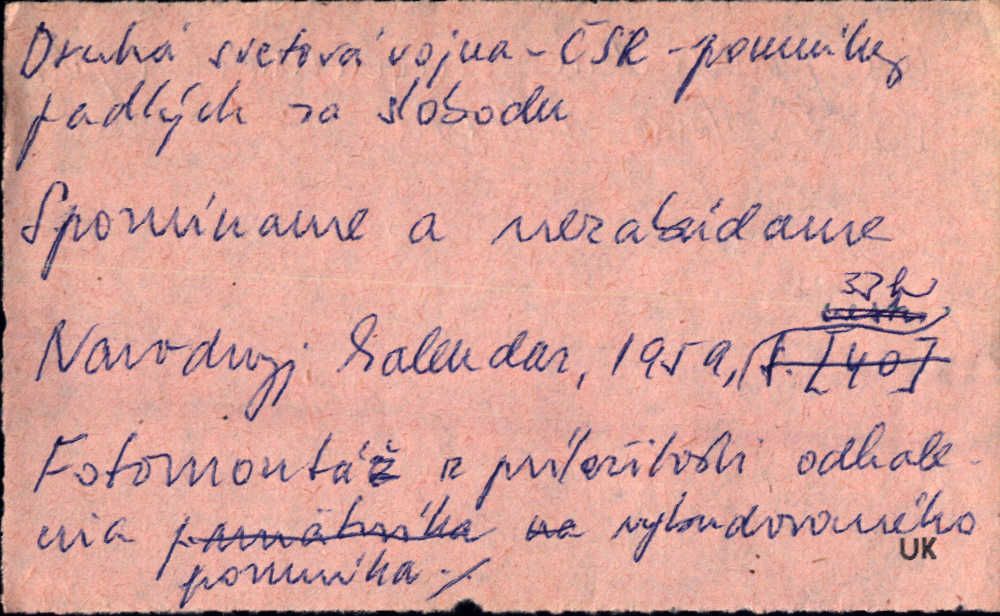 Druhá svetová vojna - ČSR - pomníky
padlých za slobodu
Spomíname a nezabúdame
33 h
Narodnyj kalendar, 1959, s. [40]
Fotomontáž z príležitosti odhale-
nia pamätníka na vybudovaného
pomníka.
UK